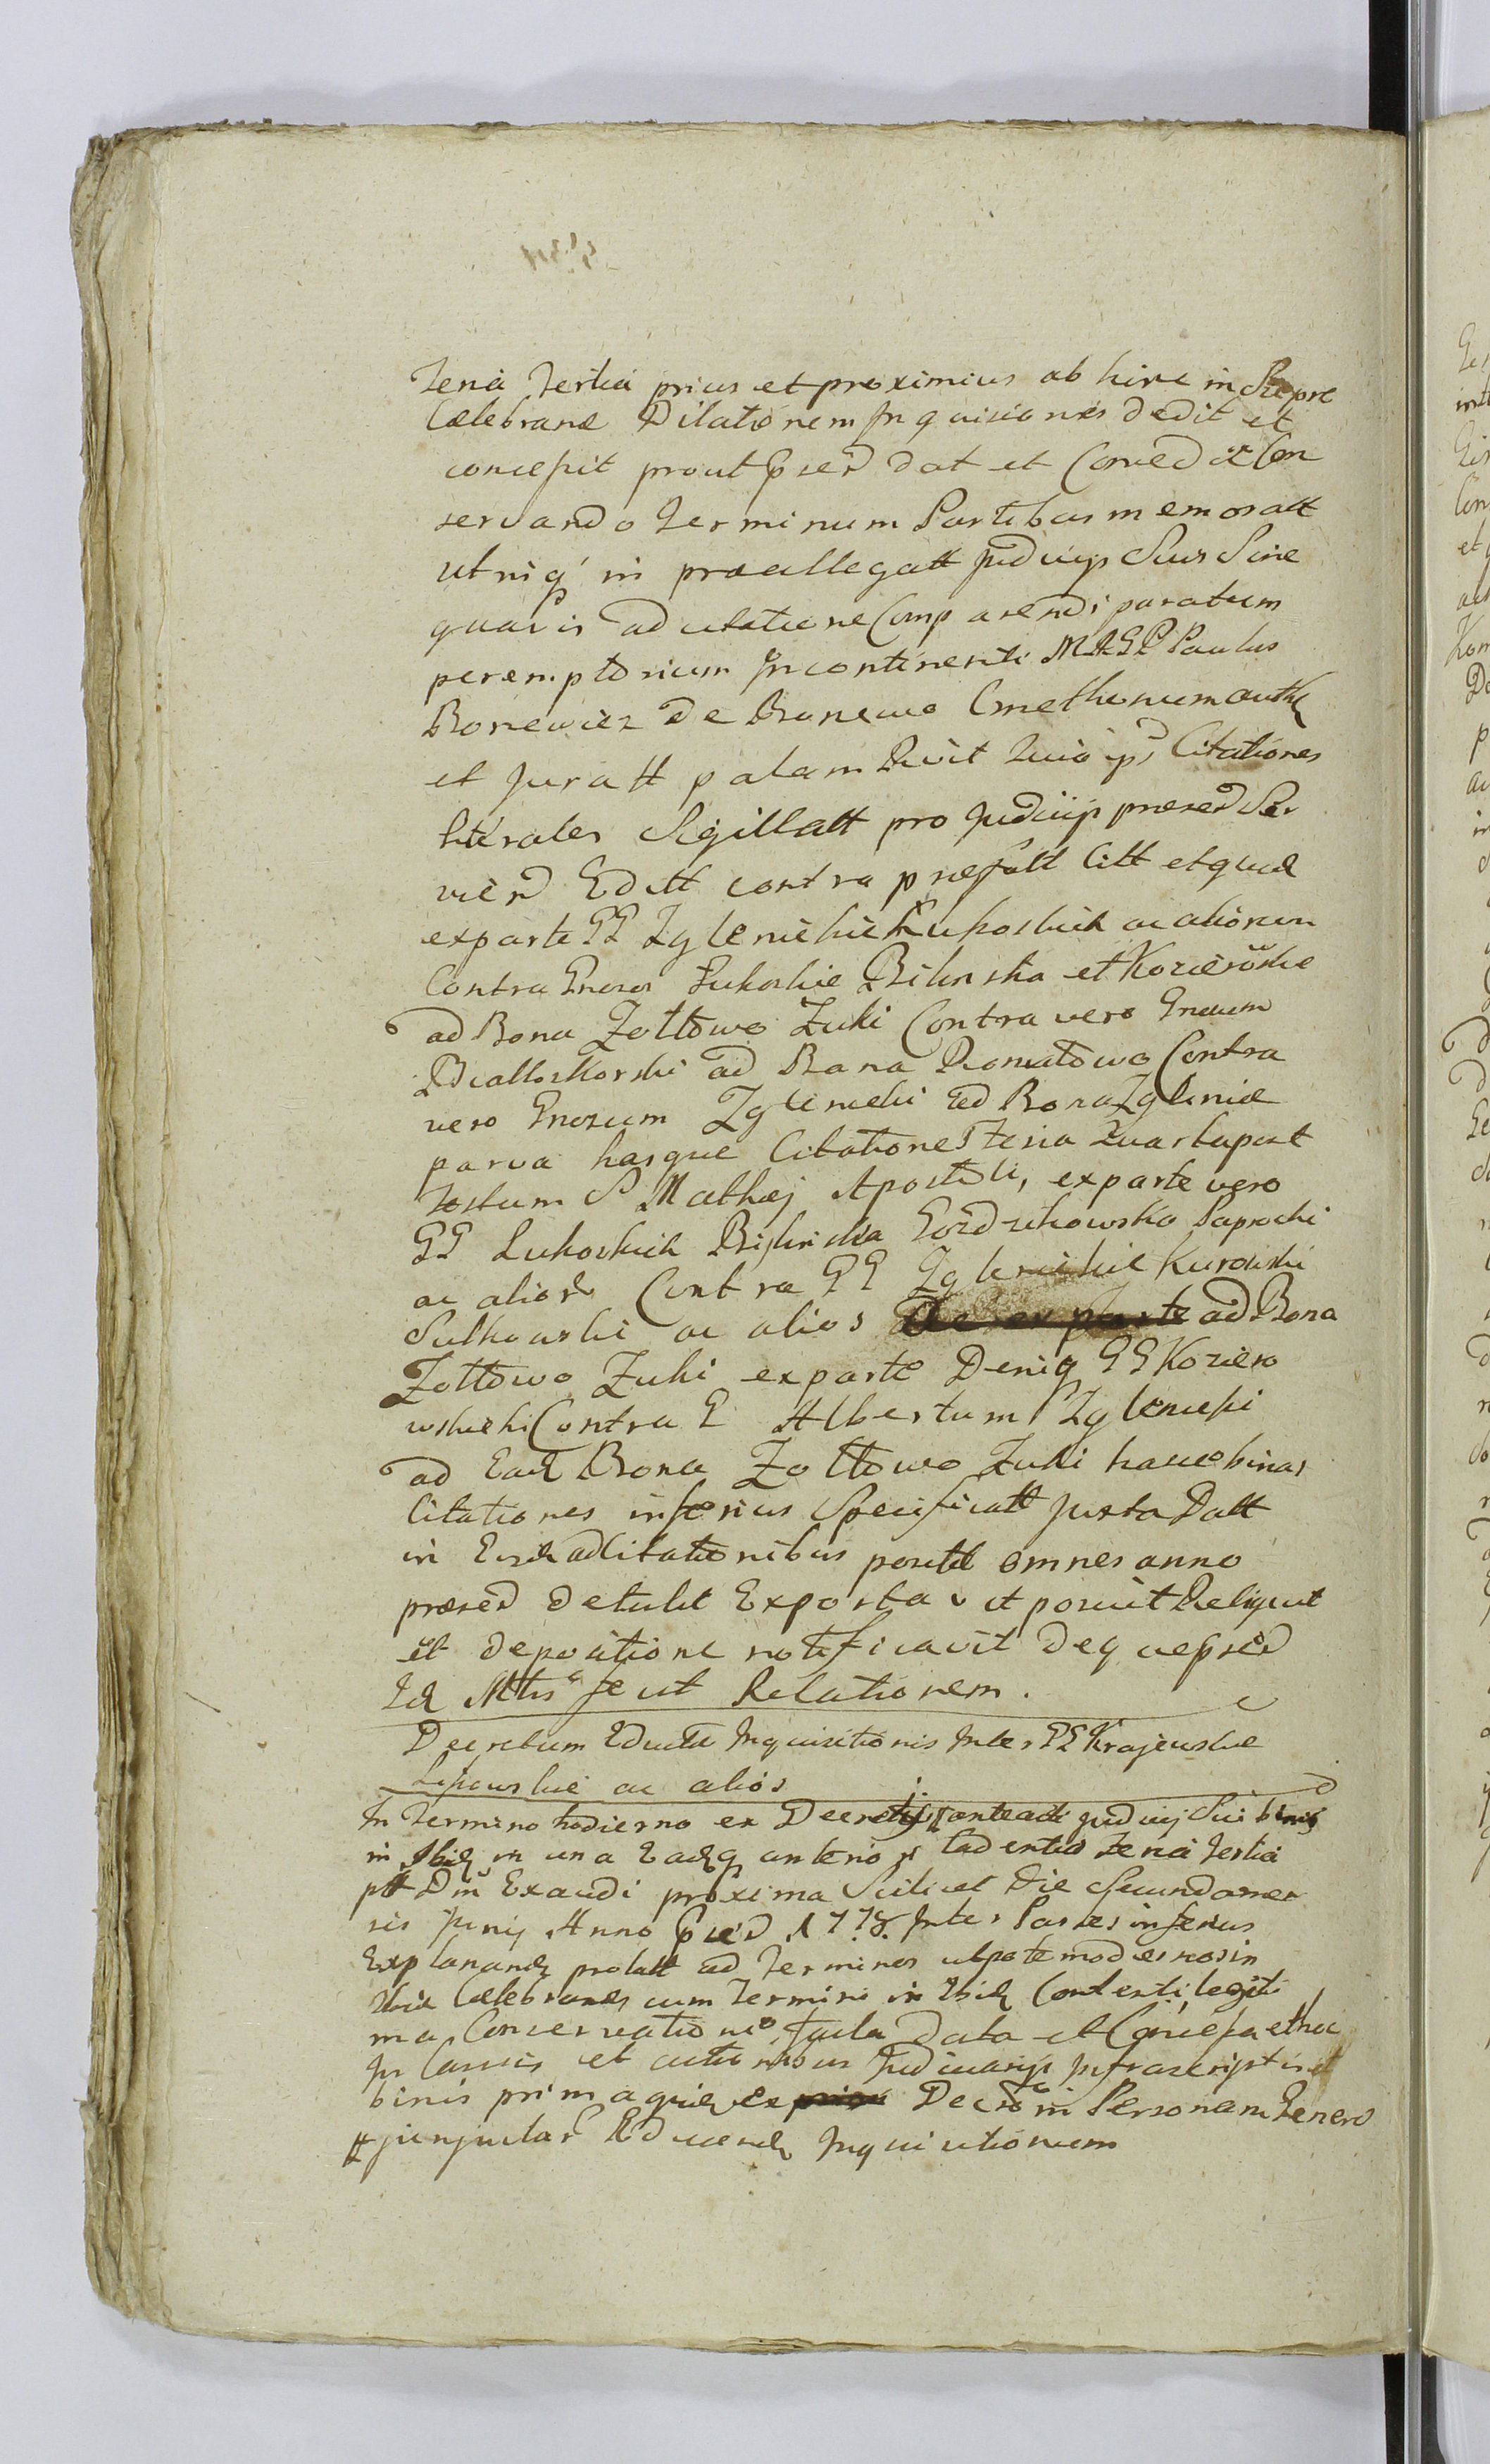 Feria Tertia prius et proximius ab hinc in Sierpre
Celebrand Dilationem Inquisitiones dedit et
concessit prout Pserd dat et Conced ac Con
servando Terminum Partibus memoratt
utrisq in praeallegatt Judicijs Suis Sine
quavis adcitatione Comparendi paratum
peremptorium Incontinenti MRGD Paulus
Bonewicz de Bonewo Cmethonum auth
et Juratt palam Quia ips Citationes
literales Sigillatt pro Judicijs praesed Ser
viend Editt contra praefatt Citt et quid
ex parte GG Zglenickich Lukoskich ac aliorum
Contra Gnosos Lukoskie Bilinska et Kozierowskie
ad Bona Zołtowo Zuki Contra vero Gnosum
Białłoskorski ad Bona Romatowo Contra
vero Gnosum Zglinicki ad Bona Zglinice
parva hasque Citationes Feria Quarta post
Festum S Mathaej Apostoli, ex parte vero
GG Lukoskich Bilinska Gozdzikowska Paprocki
ac alior Contra GG Zglenickie Kurowski
Sulkowski ac alios ad Bona
Zołtowo Zuki ex parte Deniq GG Koziero
wskich Contra G Albertum Zglenicki
ad Ead Bona Zołtowo Zuki hasce binas
Citationes inferius Specificatt Juxta Datt
in Eisd adCitationibus positt omnes anno
praesed detulit Exportavit posuit Reliquit
et depositione notificavit deq ue pserd
Id Mtis fecit Relationem.
Decretum Educta Inquisitionis Inter GG Krajewskie
Lipowskie ac alios
In Termino hodierno ex Decretis anteacti Judicij Sui binis
in Ibid in una Eadq anterio Cadentia Feria Tertia
ptt Dm Exaudi proxima Scilicet Die Secunda men
sis Junij Anno Pserd 1778 Inter Partes inferius
Explanand prolatt ad Terminos utpote modernos in
Ibid Celebrand cum Termini in Ibid Contenti legiti
ma Conservatione facta Data et Concessa et hac
In Causis et actionibus Judiciarijs Infrascriptis et
binis prima quid ex Decto in Personam Genero
junjuctar Educend Inquisitionum